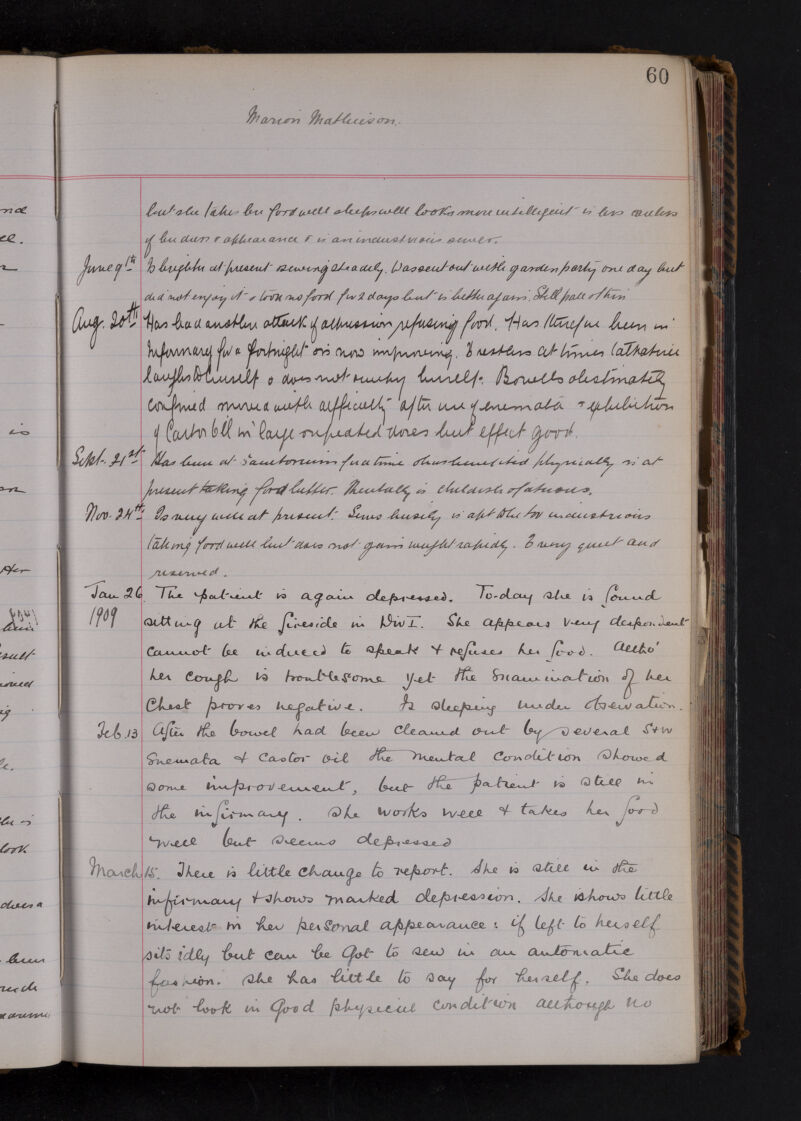 60
Marion Mathieson.
but she takes her food well sleeps well looks more intelligent is less careless
of her dress & appearance & is an industrious sewer.
June 9th Is brighter at present & sewing steadily. Was sent out with garden party one day but
did not enjoy it & took no food for 2 days but is better again. Still pale & thin
Aug. 20th Has had another attack of depression refusing food. Has therefore been in
Infirmary for a fortnight & is now improving. Is restless at times
laughs to herself & does not himself. Bowels obstinately
confined moved with difficulty after use of enemata & exhibition
of Castor Oil in large & repeated doses but effect good.
Sept. 21st Has been at Sanatorium for a time & has benefited physically & is at
present taking food better. Mentally is childish & fatuous.
Nov. 24th Is very well at present. Sews busily is industrious
taking food well but does not gain weight rapidly. Is very quiet and
reserved.
Jan 26 The patient is again depressed. To-day she is found
1909 sitting at the fireside in Div I. She appears very despondent
cannot be induced to speak & refuses her food. Altho'
her cough is troublesome yet the examination of her
Chest proves negative. Is sleeping under observation.
Feb. 13 After the bowel had been cleared out by several S & W
Enemata & Castor oil the mental condition showed
some improvement, but the patient is still in
the infirmary. She works well & takes her food
well but seems depressed
March 15. There is little change to report. She is still in the
infirmary & shows marked depression. She shows little
interest in her personal appearance: if left to herself
sits idly but can be got to sew in an automatic
fashion. She has little to say for herself. She does
not look in good physical condition although no